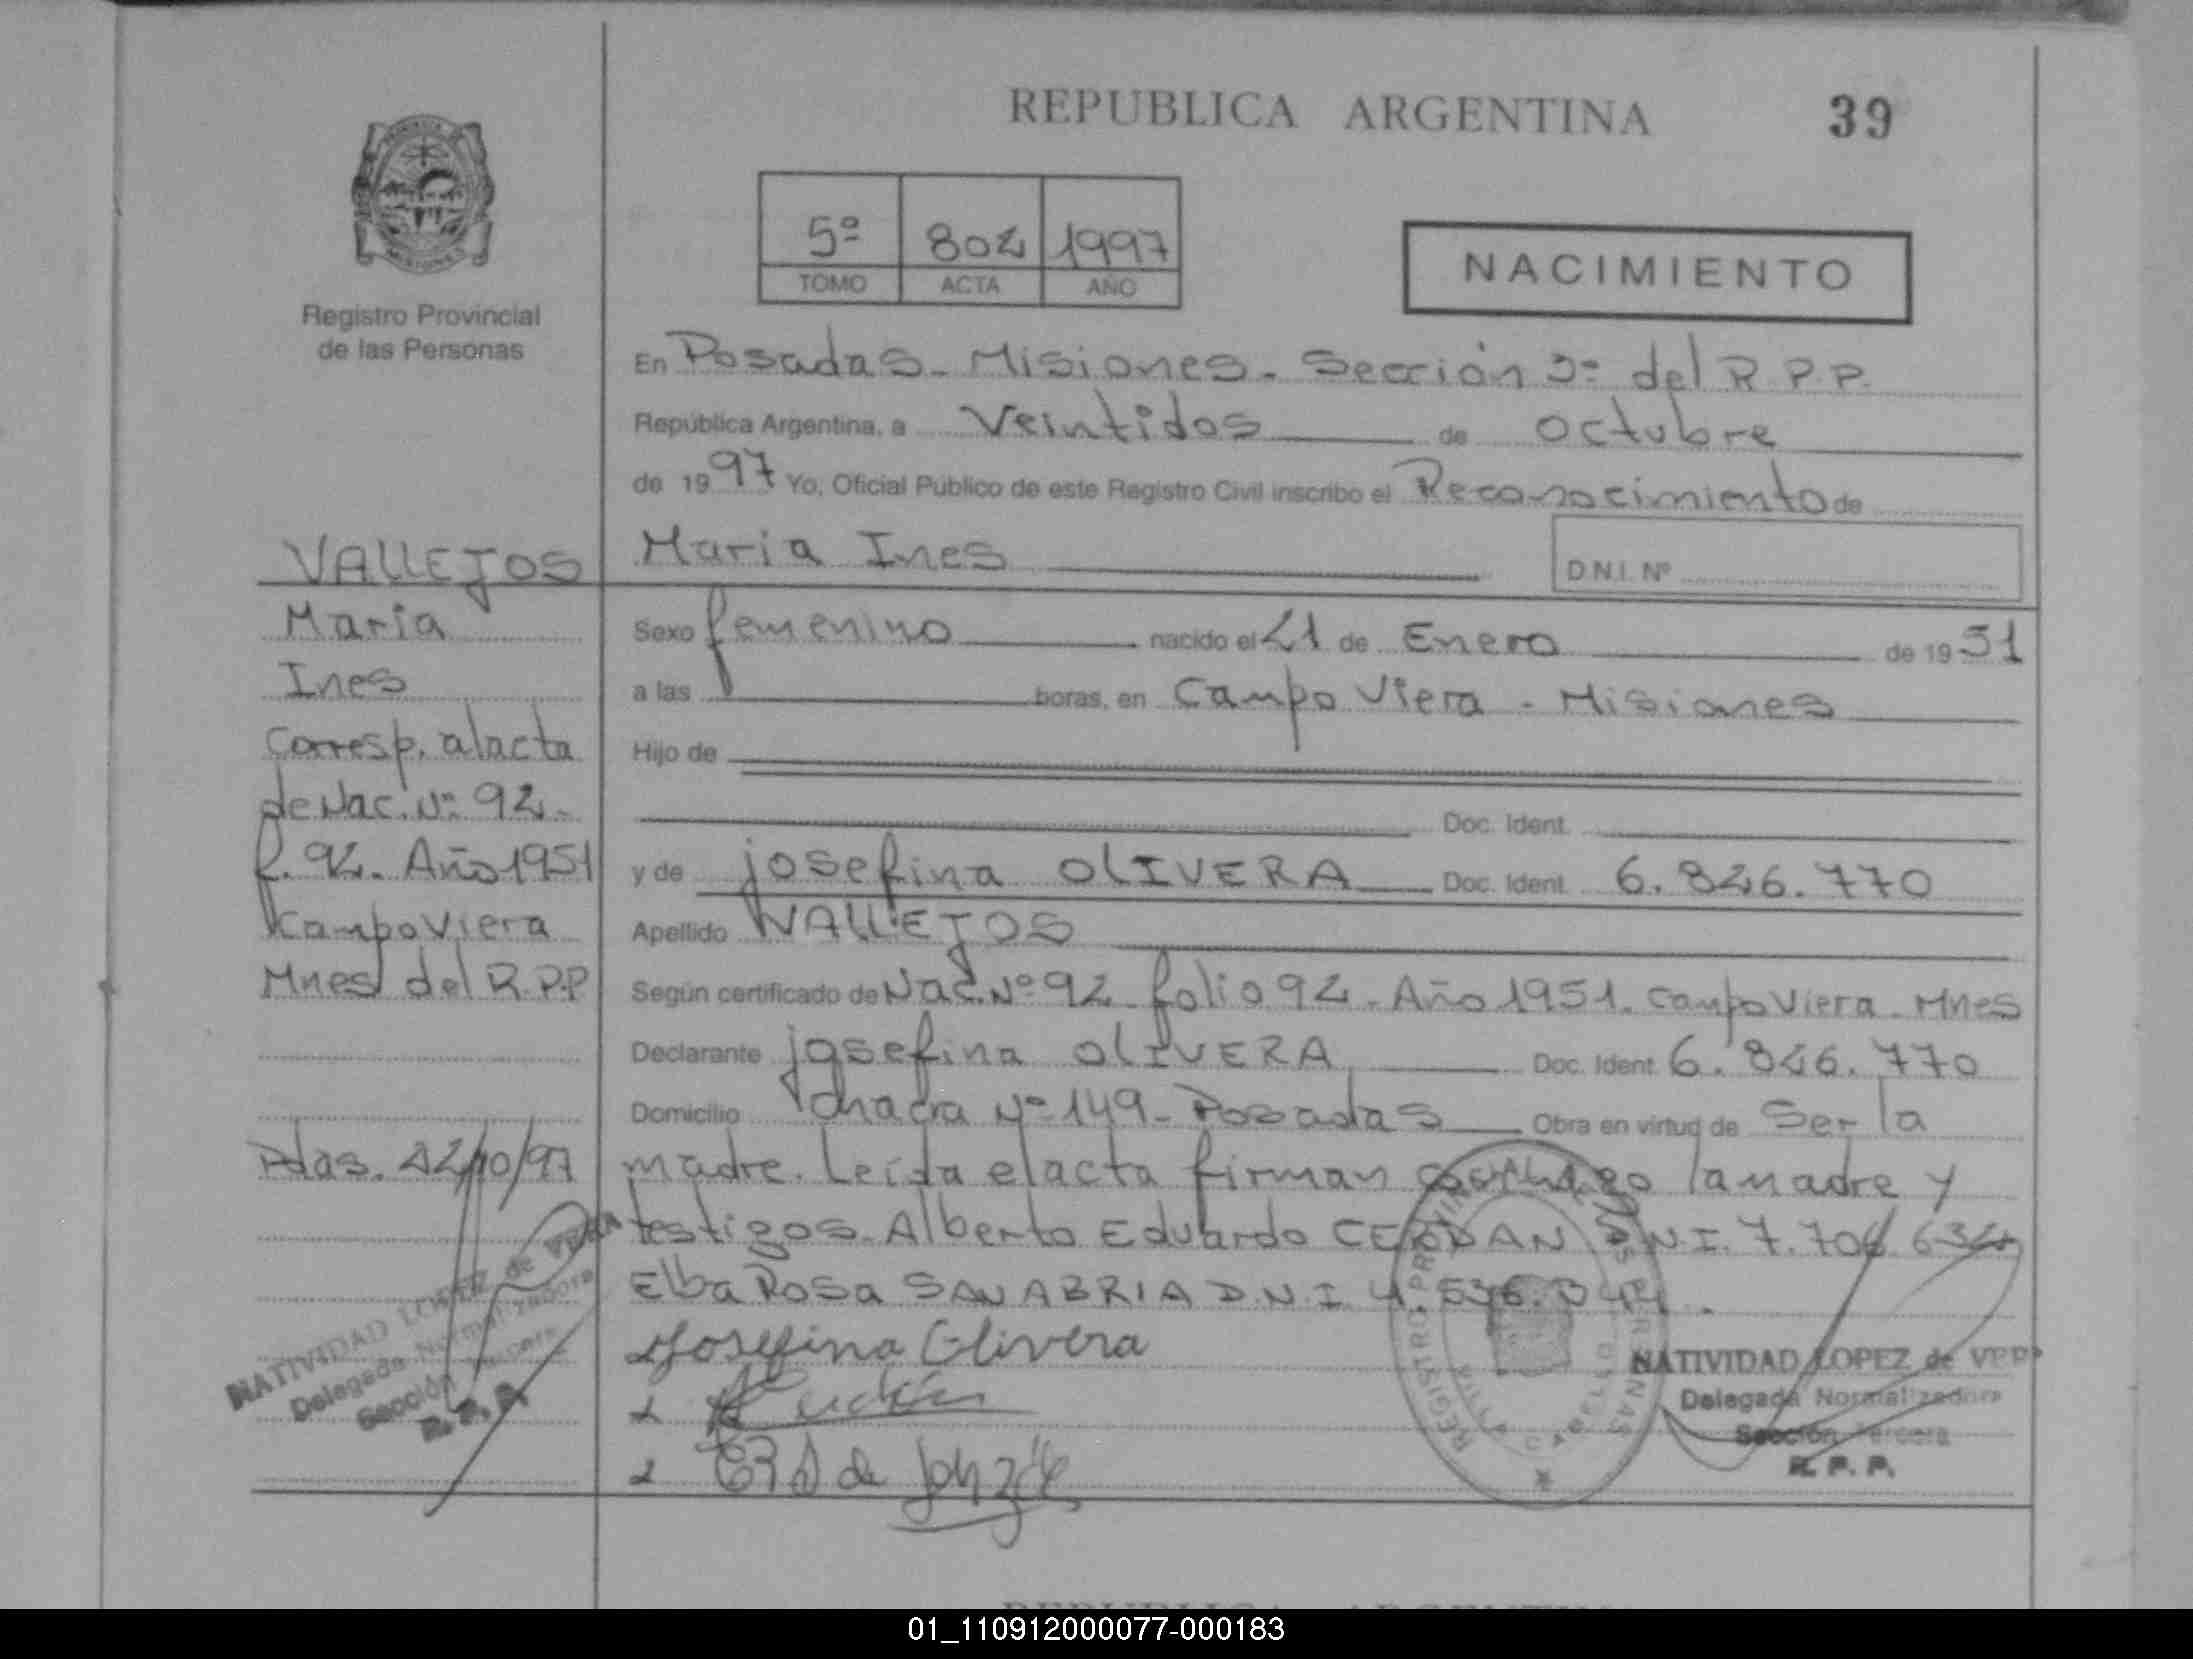 REPUBLICA ARGENTINA
39
5º 802 1997
TOMO ACTA AÑO
NACIMIENTO
Registro Provincial
de las Personas
En Posadas - Misiones - Sección 3º del R.P.P.
República Argentina, a Veintidos de Octubre
de 1997 Yo, Oficial Público de este Registro Civil inscribo el Reconocimiento de
Maria Ines
D.N.I. Nº
Sexo femenino nacido el 21 de Enero de 1951
a las horas, en Campo Viera - Misiones
Hijo de
Doc. Ident.
y de Josefina OLIVERA Doc. Ident. 6.826.770
Apellido VALLEJOS
Según certificado de Nac. Nº 92 folio 92. Año 1951. Campo Viera - Mnes
Declarante Josefina OLIVERA Doc. Ident. 6.826.770
Domicilio Chacra Nº 149 - Posadas Obra en virtud de Ser la
madre. Leída el acta firman conmigo la madre y
testigos. Alberto Eduardo CERDAN D.N.I. 7.706.632
Elba Rosa SANABRIA D.N.I. 4.536.344.
Josefina Olivera
VALLEJOS
Maria
Ines
Corresp. al acta
de Nac. Nº 92 -
f. 92. Año 1951
Campo Viera
Mnes del R.P.P
Pdas. 22/10/97
NATIVIDAD LOPEZ de VERA
Delegada Normalizadora
Sección Tercera
R.P.P.
NATIVIDAD LOPEZ de
Delegada Normalizadora
Sección Tercera
R. P. P.
01_110912000077-000183